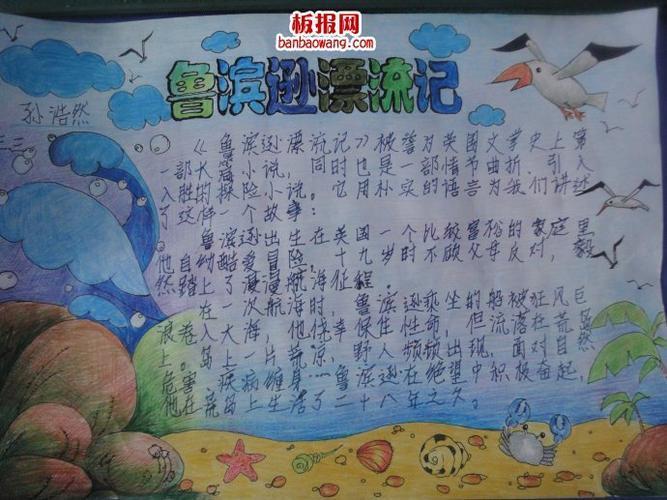 板报网
banbaowang.com
鲁滨逊漂流记
孙浩然
三三
《鲁滨逊漂流记》被誉为英国文学史上第
一部长篇小说,同时也是一部情节曲折、引人
入胜的探险小说。它用朴实的语言为我们讲述
了这样一个故事:
鲁滨逊出生在英国一个比较富裕的家庭里
他自幼酷爱冒险,十九岁时不顾父母反对,毅
然踏上了漫漫航海征程。
在一次航海时,鲁滨逊乘坐的船被狂风巨
浪卷入大海,他侥幸保住性命,但流落在荒岛
上。岛上一片荒凉,野人频频出现,面对自然
危害、疾病缠身…鲁滨逊在绝望中积极奋起,
他在荒岛上生活了二十八年之久。